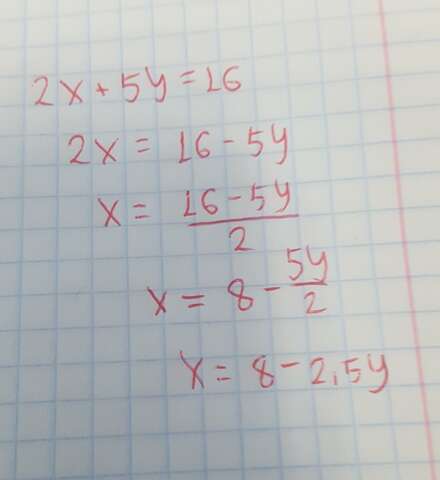 2x + 5y = 16
2x = 16 - 5y
x = \frac{16 - 5y}{2}
x = 8 - \frac{5y}{2}
x = 8 - 2,5y